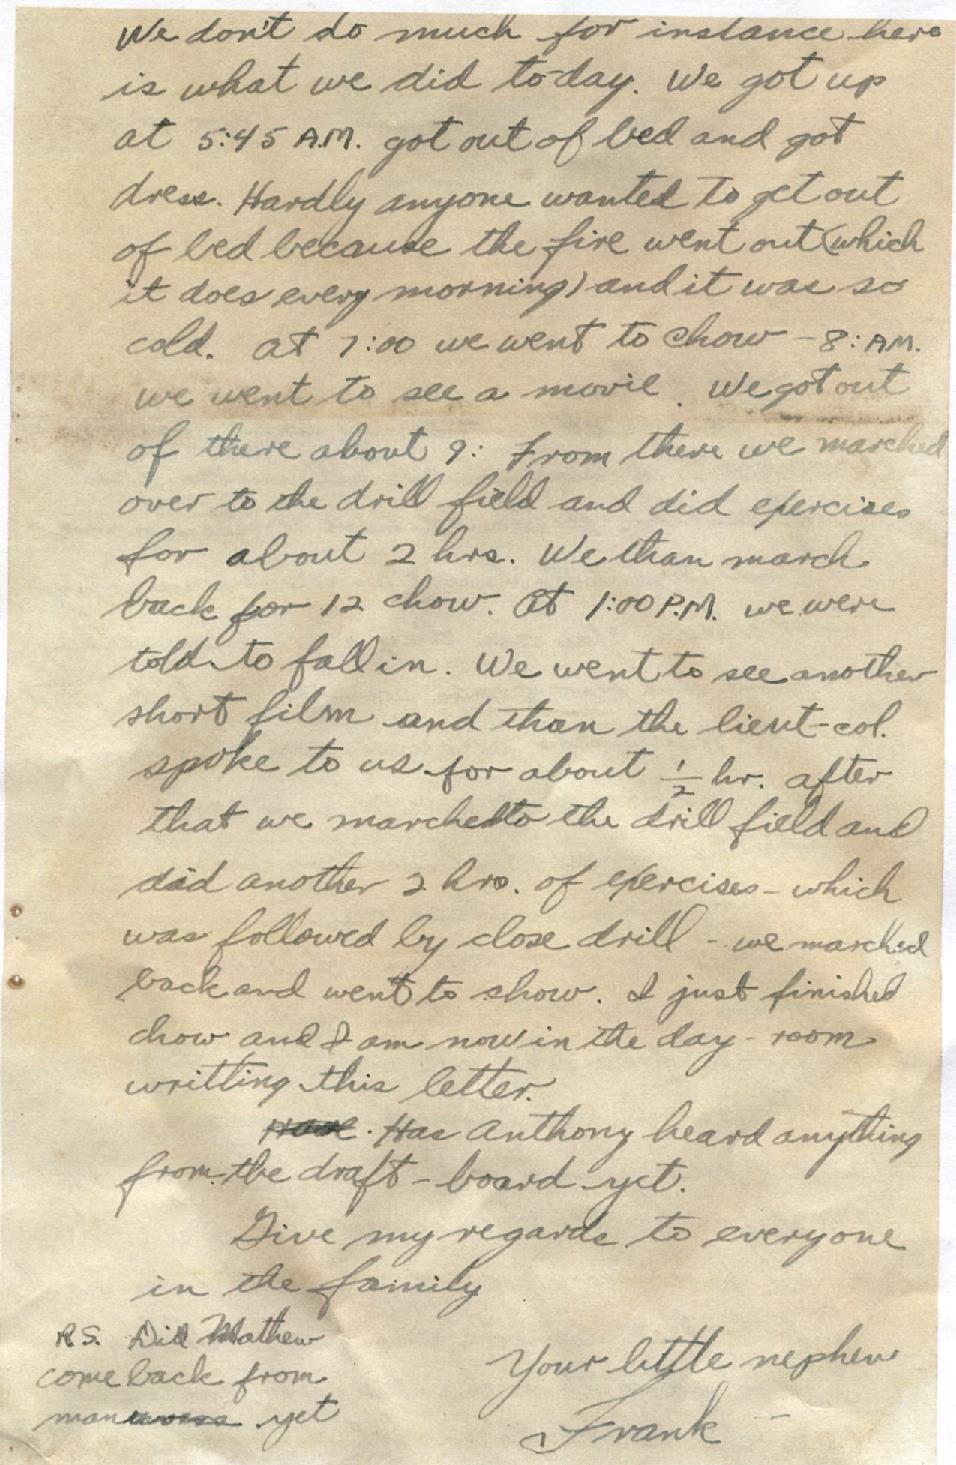 We don't do much for instance here
is what we did today. We got up
at 5:45 A.M. got out of bed and got
dress. Hardly anyone wanted to get out
of bed because the fire went out (which
it does every morning) and it was so
cold. at 7:00 we went to chow - 8: A.M.
we went to see a movie. We got out
of there about 9: From there we marched
over to the drill field and did exercises
for about 2 hrs. We than march
back for 12 chow. at 1:00 P.M. we were
told to fall in. We went to see another
short film and than the lieut-col.
spoke to us for about 1/2 hr. after
that we marched to the drill field and
did another 2 hrs. of exercises - which
was followed by close drill - we marched
back and went to show. I just finished
chow and I am now in the day-room
writting this letter.
Has Anthony heard anything
from the draft-board yet.
Give my regards to everyone
in the family
Your little nephew
Frank -
P.S. Did Mathew
come back from
yet